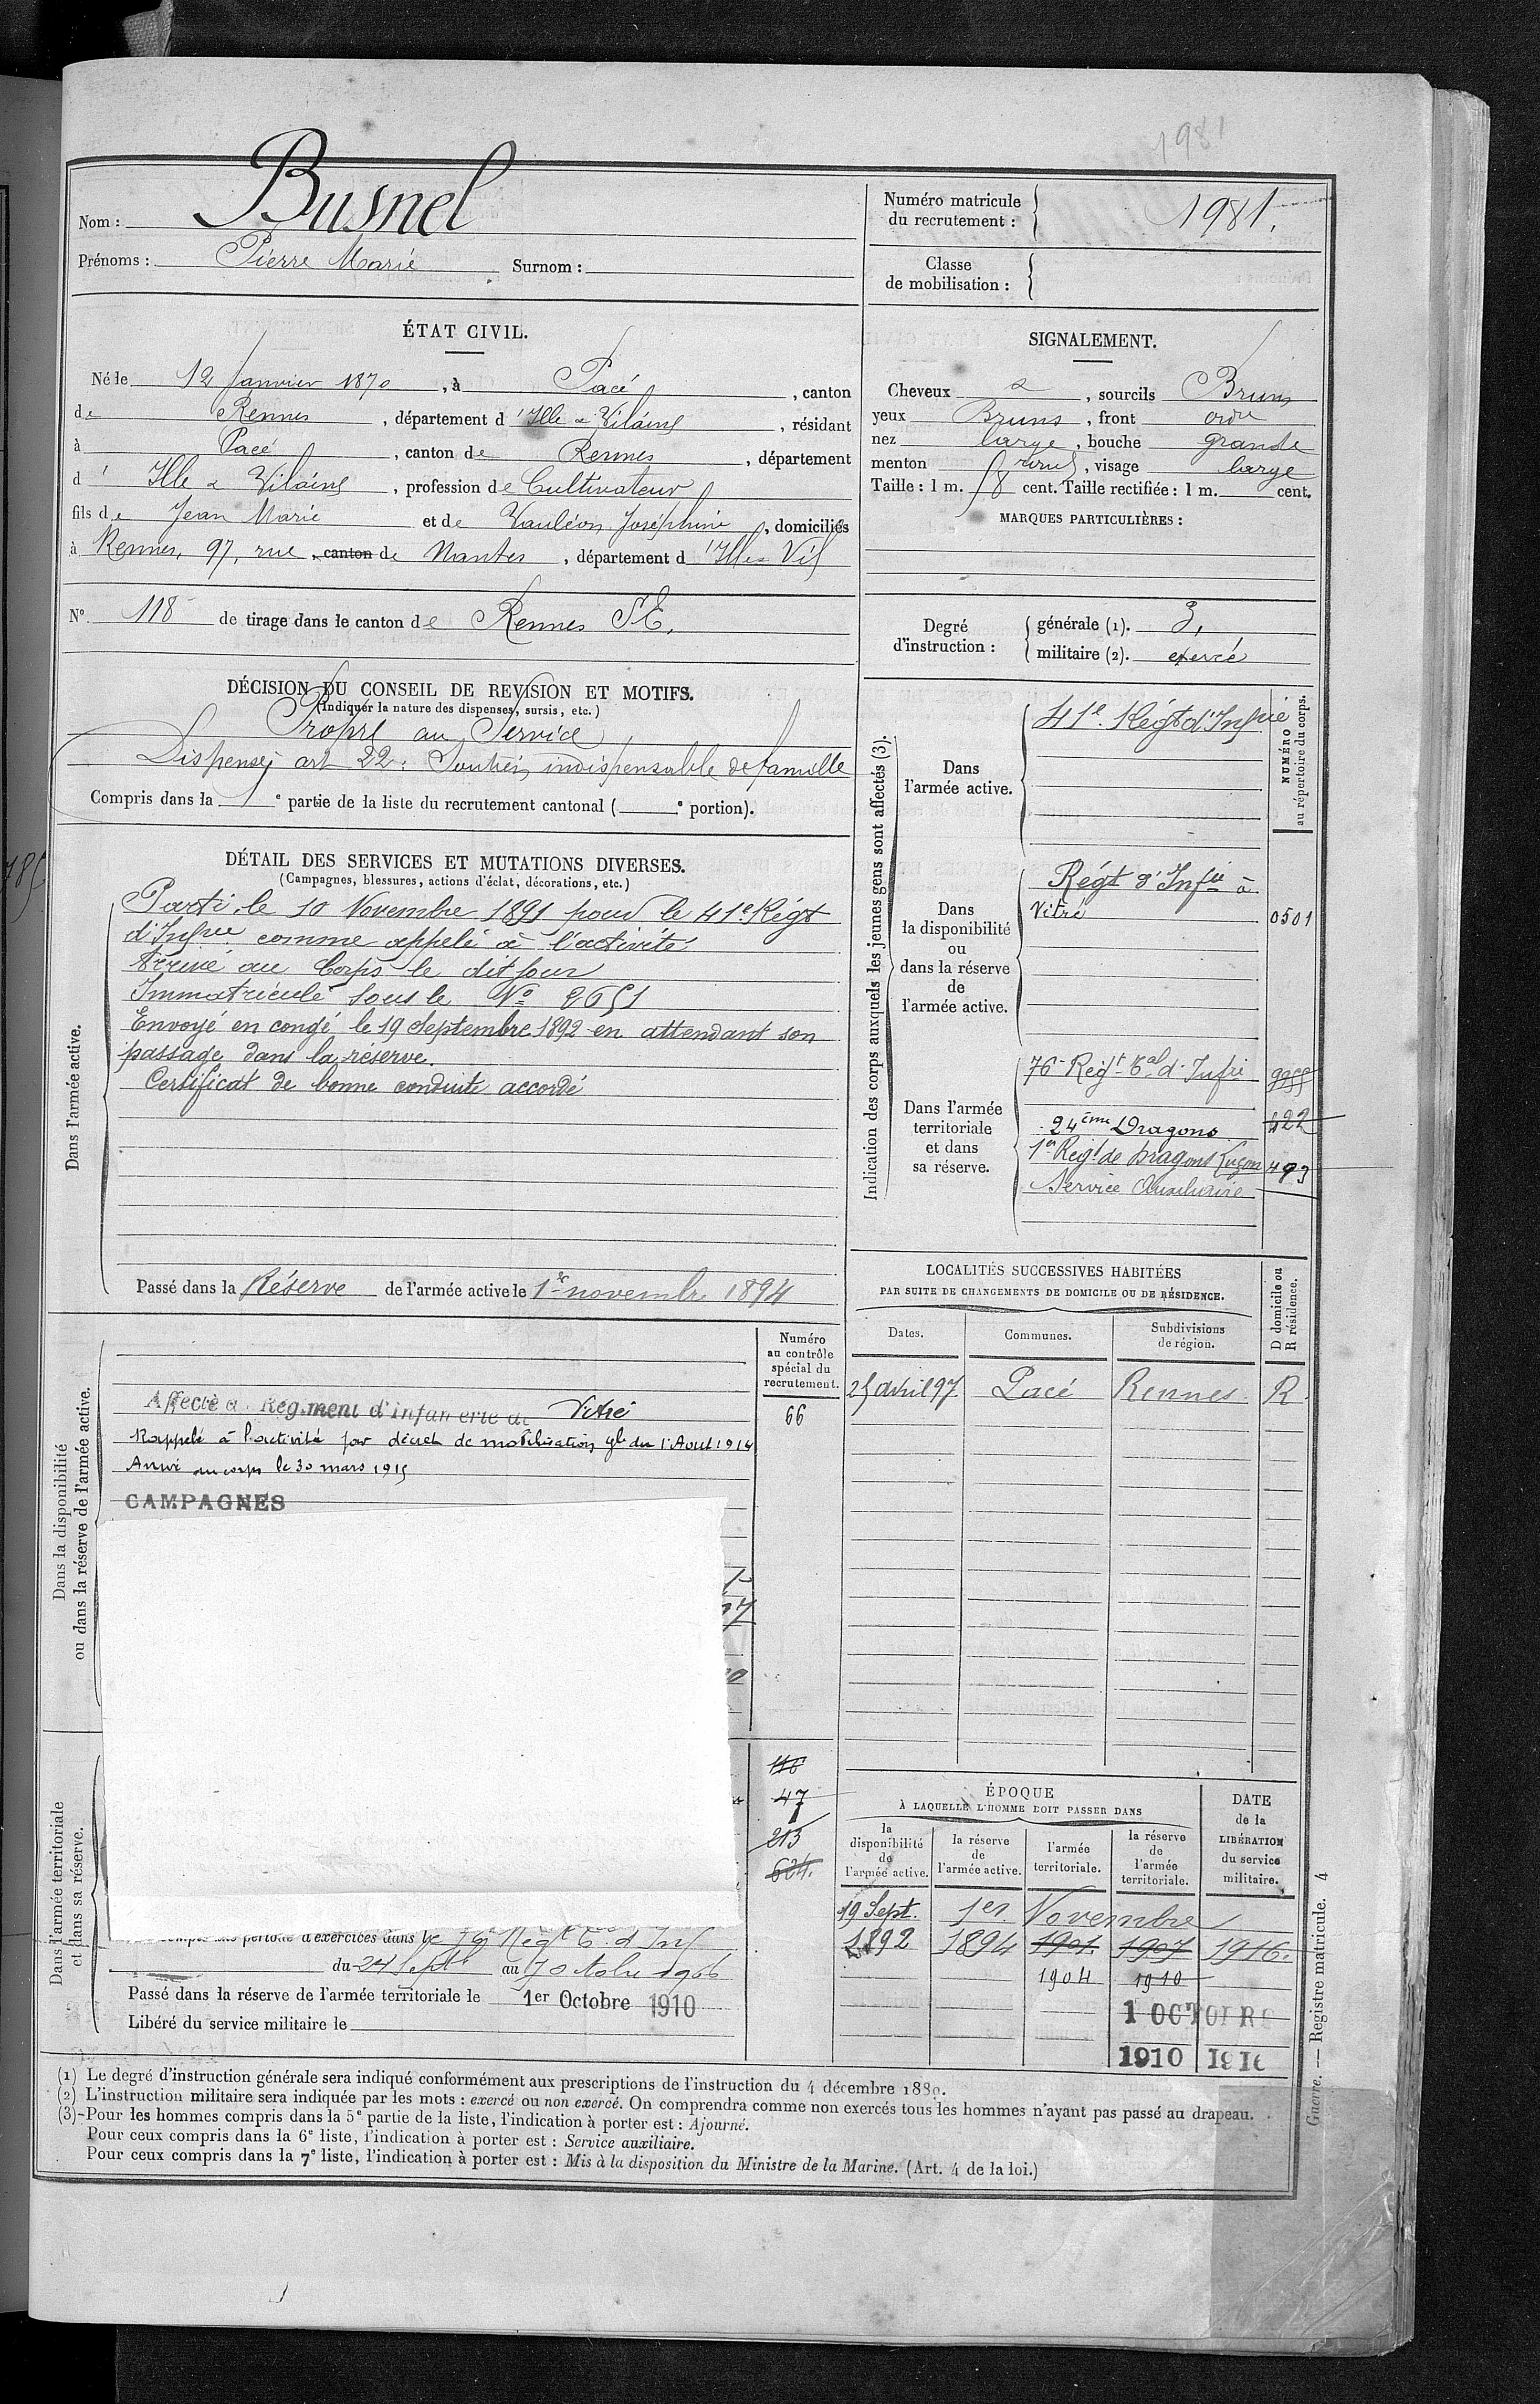 1981
Nom : Busnel
Prénoms : Pierre Marie Surnom :
Numéro matricule du recrutement : 1981.
Classe de mobilisation :
ÉTAT CIVIL.
Né le 12 Janvier 1870, à Pacé, canton
de Rennes, département d'Ille & Vilaine, résidant
à Pacé, canton de Rennes, département
d'Ille & Vilaine, profession de Cultivateur
fils de Jean Marie et de Vauléon Joséphine, domiciliés
à Rennes, 97, rue canton de Nantes, département d'Ille & Vil
N° 118 de tirage dans le canton de Rennes S.E.
SIGNALEMENT.
Cheveux &, sourcils Bruns
yeux Bruns, front ordre
nez large, bouche grande
menton rond, visage large
Taille : 1 m. 58 cent. Taille rectifiée : 1 m. cent.
MARQUES PARTICULIÈRES :
Degré d'instruction :
générale (1). 3,
militaire (2). exercé
DÉCISION DU CONSEIL DE REVISION ET MOTIFS.
(Indiquer la nature des dispenses, sursis, etc.)
Propre au Service
Dispensé art 22. Soutien indispensable de famille
Compris dans la e partie de la liste du recrutement cantonal ( e portion).
DÉTAIL DES SERVICES ET MUTATIONS DIVERSES.
(Campagnes, blessures, actions d'éclat, décorations, etc.)
Dans l'armée active.
Parti le 10 Novembre 1891 pour le 41e Régt
d'Infrie comme appelé à l'activité
Arrivé au Corps le dit jour
Immatriculé sous le N° 2651
Envoyé en congé le 19 Septembre 1892 en attendant son
passage dans la réserve.
Certificat de bonne conduite accordé
Passé dans la Réserve de l'armée active le 1er novembre 1894
Indication des corps auxquels les jeunes gens sont affectés (3).
NUMÉRO au répertoire du corps.
Dans l'armée active.
41e Régt d'Infrie
Dans la disponibilité ou dans la réserve de l'armée active.
Régt d'Infie à
Vitré 0501
Dans l'armée territoriale et dans sa réserve.
76e Régt Tal d'Infie
24ème Dragons 422
1er Régt de Dragons Luçon 493
Service Auxiliaire
LOCALITÉS SUCCESSIVES HABITÉES
PAR SUITE DE CHANGEMENTS DE DOMICILE OU DE RÉSIDENCE.
Dates. Communes. Subdivisions de région. D domicile ou R résidence.
25 avril 97 Pacé Rennes. R.
Dans la disponibilité ou dans la réserve de l'armée active.
Numéro au contrôle spécial du recrutement.
Affecté au Régiment d'Infanterie de Vitré 66
Rappelé à l'activité par décret de mobilisation gle du 1 Aout 1914
Arrivé au corps le 30 mars 1915
CAMPAGNES
Dans l'armée territoriale et dans sa réserve.
116
47
213
624.
période d'exercices dans le 76 Régt T. d'Inf
du 24 Septe au 7 Octobre 1906
Passé dans la réserve de l'armée territoriale le 1er Octobre 1910
Libéré du service militaire le
ÉPOQUE
À LAQUELLE L'HOMME DOIT PASSER DANS
la disponibilité de l'armée active.
la réserve de l'armée active.
l'armée territoriale.
la réserve de l'armée territoriale.
DATE de la LIBÉRATION du service militaire.
19 Sept. 1er Novembre
1892 1894 1901 1907 1916.
1904 1910
1 OCTOBRE
1910 1916
(1) Le degré d'instruction générale sera indiqué conformément aux prescriptions de l'instruction du 4 décembre 1889.
(2) L'instruction militaire sera indiquée par les mots : exercé ou non exercé. On comprendra comme non exercés tous les hommes n'ayant pas passé au drapeau.
(3) Pour les hommes compris dans la 5e partie de la liste, l'indication à porter est : Ajourné.
Pour ceux compris dans la 6e liste, l'indication à porter est : Service auxiliaire.
Pour ceux compris dans la 7e liste, l'indication à porter est : Mis à la disposition du Ministre de la Marine. (Art. 4 de la loi.)
Guerre. — Registre matricule. 4